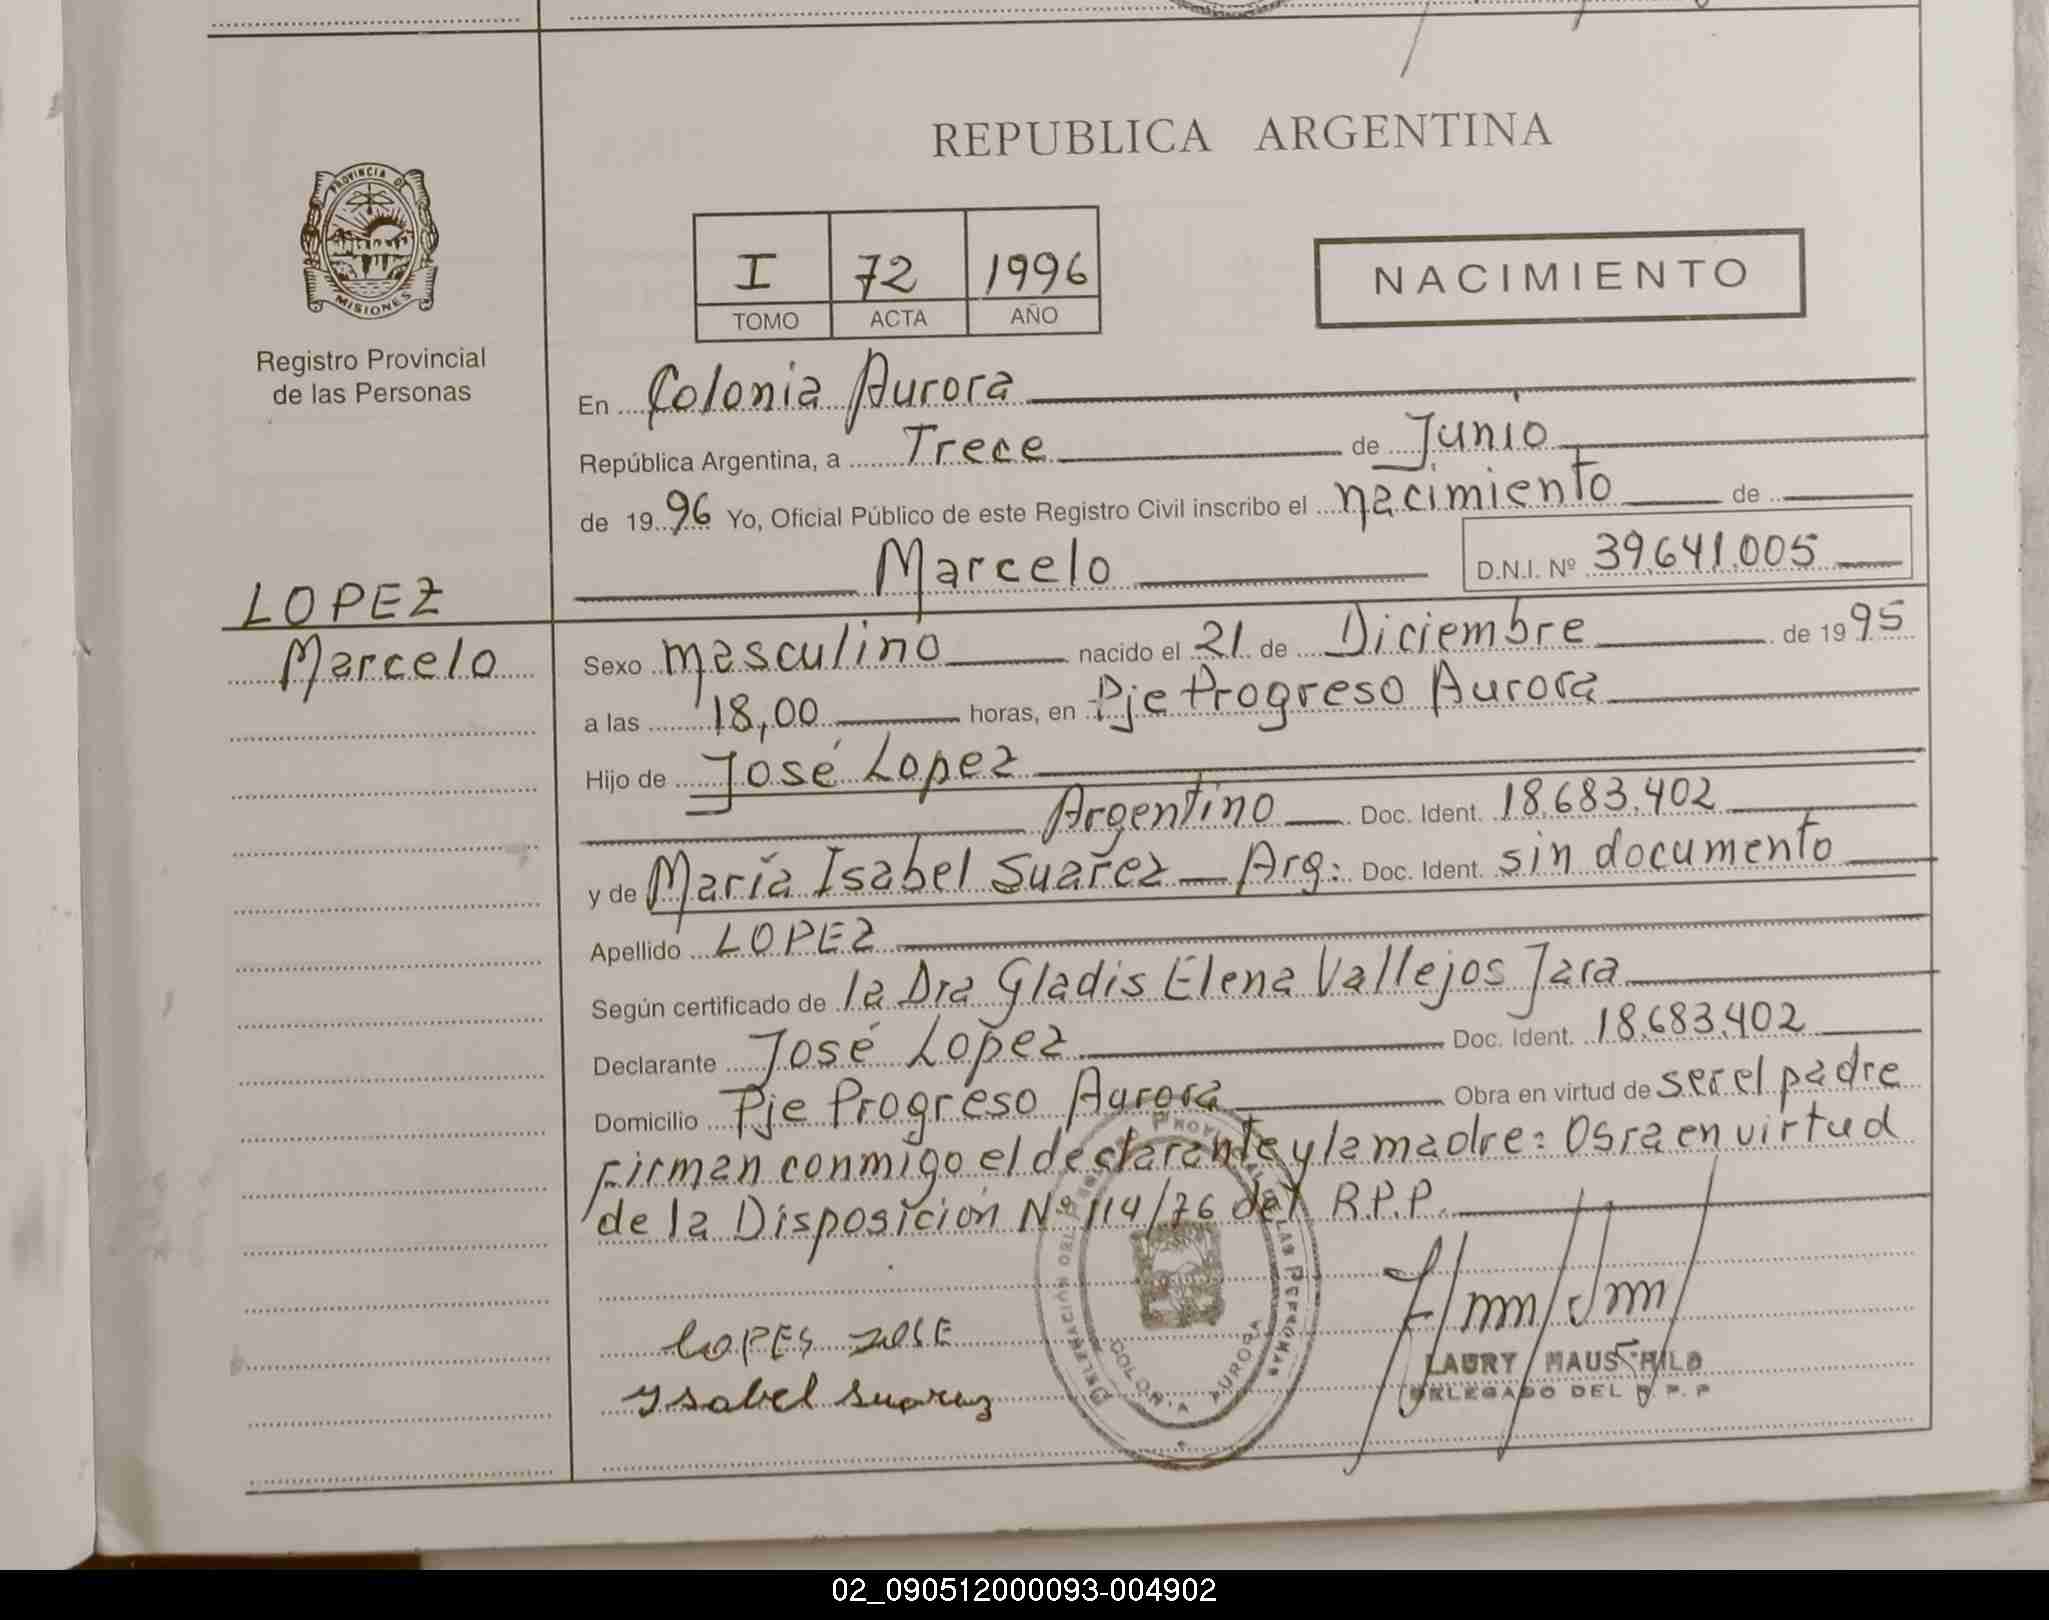 REPUBLICA ARGENTINA
PROVINCIA DE
MISIONES
Registro Provincial
de las Personas
I 72 1996
TOMO ACTA AÑO
NACIMIENTO
En Colonia Aurora
República Argentina, a Trece de Junio
de 1996 Yo, Oficial Público de este Registro Civil inscribo el nacimiento de
Marcelo D.N.I. Nº 39.641.005
LOPEZ
Marcelo
Sexo masculino nacido el 21 de Diciembre de 1995
a las 18,00 horas, en Pje Progreso Aurora
Hijo de José Lopez
Argentino Doc. Ident. 18.683.402
y de María Isabel Suarez Arg: Doc. Ident. sin documento
Apellido LOPEZ
Según certificado de la Dra Gladis Elena Vallejos Jara
Declarante José Lopez Doc. Ident. 18.683.402
Domicilio Pje Progreso Aurora Obra en virtud de ser el padre
Firman conmigo el declarante y la madre: Osra en virtud
de la Disposición Nº 114/76 del R.P.P.
LOPES JOSE
Ysabel Suarez
COLONIA AURORA
DELEGADO DEL R.P.P
02_090512000093-004902